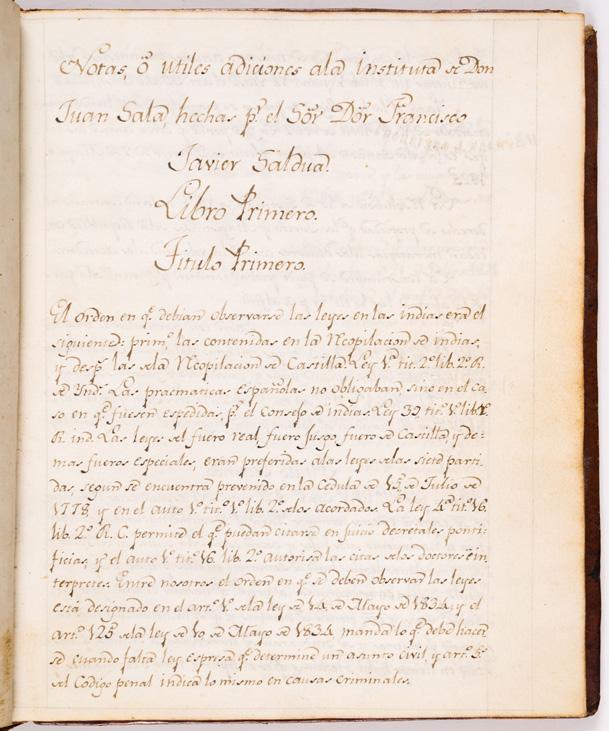 Notas, ó utiles adiciones ala instituta de Don
Juan Sala, hechas pr. el Sor. Dor. Francisco
Javier Saldua.
Libro Primero.
Titulo Primero.
El orden en qe. debian observarse las leyes en las indias era el
siguiente: primo. las contenidas en la Recopilacion de indias,
y desps. las dela Recopilacion de Castilla. Ley 1ª. tit. 2º. lib. 2º. R.
de Ind. Las pracmaticas españolas no obligaban, sino en el ca-
so en qe. fuesen espedidas, pr. el Consejo de indias. Ley 39 tit. 1º. lib.
R. ind. Las leyes del fuero real, fuero jusgo, fuero de Castilla, y de-
mas fueros especiales, eran preferidas alas leyes delas siete parti-
das, segun se encuentra prevenido en la Cedula de 15, de Julio de
1778, y en el auto 1º. tit. 1º. lib. 2º. delos acordados. La ley 4ª. tit. 16.
lib. 2º. R. C. permite el qe. puedan citarse en juicio decretales ponti-
ficias; y el auto 1º. tit. 16. lib. 2º. autorisa las citas delos doctores é in-
terpretes. Entre nosotros el orden en qe. se deben observar las leyes
está designado en el arto. 1º. dela ley de 14, de Mayo de 1834; y el
arto. 125 dela ley de 10, de Mayo de 1834, manda lo qe. debe hacer-
se cuando falta ley espresa qe. determine un asunto civil, y arto. 5º.
del Codigo penal indica lo mismo en causas criminales.